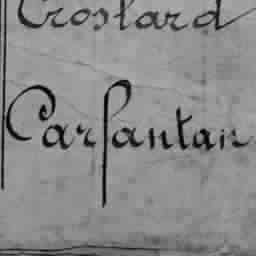 Croslard
Carfantan